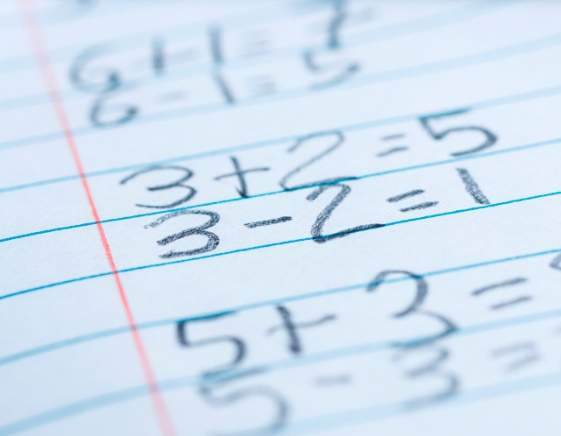 6+1=7
6-1=5
3+2=5
3-2=1
5+3=
5-3=